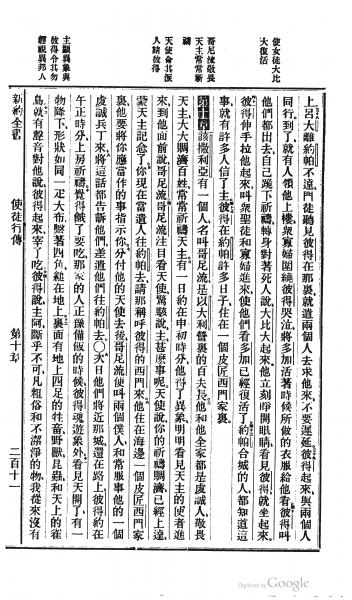 使女徒大比
大復活
哥尼流敬畏
天主常常祈
禱
天使命其派
人請彼得
主顯異象與
彼得令其勿
輕視異邦人
上呂大離約帕不遠門徒聽見彼得在那裏就遣兩個人去求他來不要遲延彼得起來與兩個人
同行到了就有人領他上樓衆寡婦圍繞彼得哭泣將多加活著時候所做的衣服給他看彼得叫
他們都出去自己跪下祈禱轉身對著死人說大比大起來他立刻睜開眼睛看見彼得就坐起來
彼得伸手拉他起來叫衆聖徒和寡婦進來使他們看多加已經復活了約帕合城的人都知道這
事就有許多人信了主彼得在約帕許多日子住在一個皮匠西門家裏
第十章該撒利亞有一個人名叫哥尼流是以大利營裏的百夫長他和他全家都是虔誠人敬畏
天主大大賙濟百姓常常祈禱天主有一日約在申初時分他得了異象明明看見天主的使者進
來到他面前說哥尼流哥尼流注目看天使驚駭說主甚麽事呢天使說你的祈禱賙濟已經上達
蒙天主記念了你現在當遣人往約帕去請那稱呼彼得的西門來他住在海邊一個皮匠西門家
裏他要將你應當作的事指示你分付他的天使去後哥尼流便叫兩個僕人和常服事他的一個
虔誠兵丁來將這話都告訴他們差遣他們往約帕去〇次日他們將近那城還在路上彼得約在
午正時分上房祈禱覺得餓了要吃那家的人正豫備飯的時候彼得魂遊象外看見天開了有一
物降下形狀如同一疋大布繫著四角縋在地上裏面有地上四足的牲畜野獸昆蟲和天上的雀
鳥就有聲音對他說彼得起來宰了吃彼得說主阿斷乎不可凡粗俗和不潔淨的物我從來沒有
新約全書
使徒行傳
第十章
二百十一
Digitized by Google